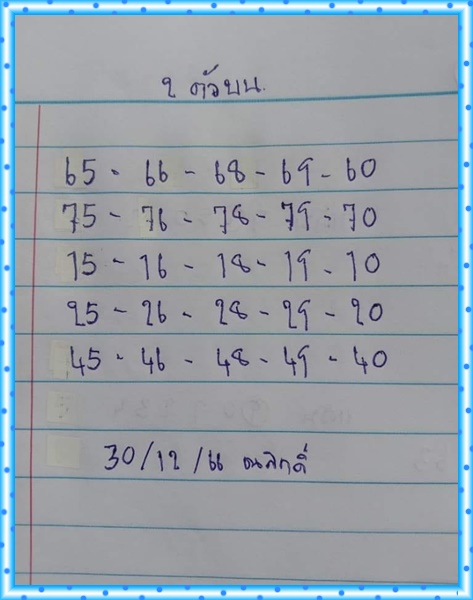 2 ตัวบน.
65 - 66 - 68 - 69 - 60
75 - 76 - 78 - 79 - 70
15 - 16 - 18 - 19 - 10
25 - 26 - 28 - 29 - 20
45 - 46 - 48 - 49 - 40
30/12/66